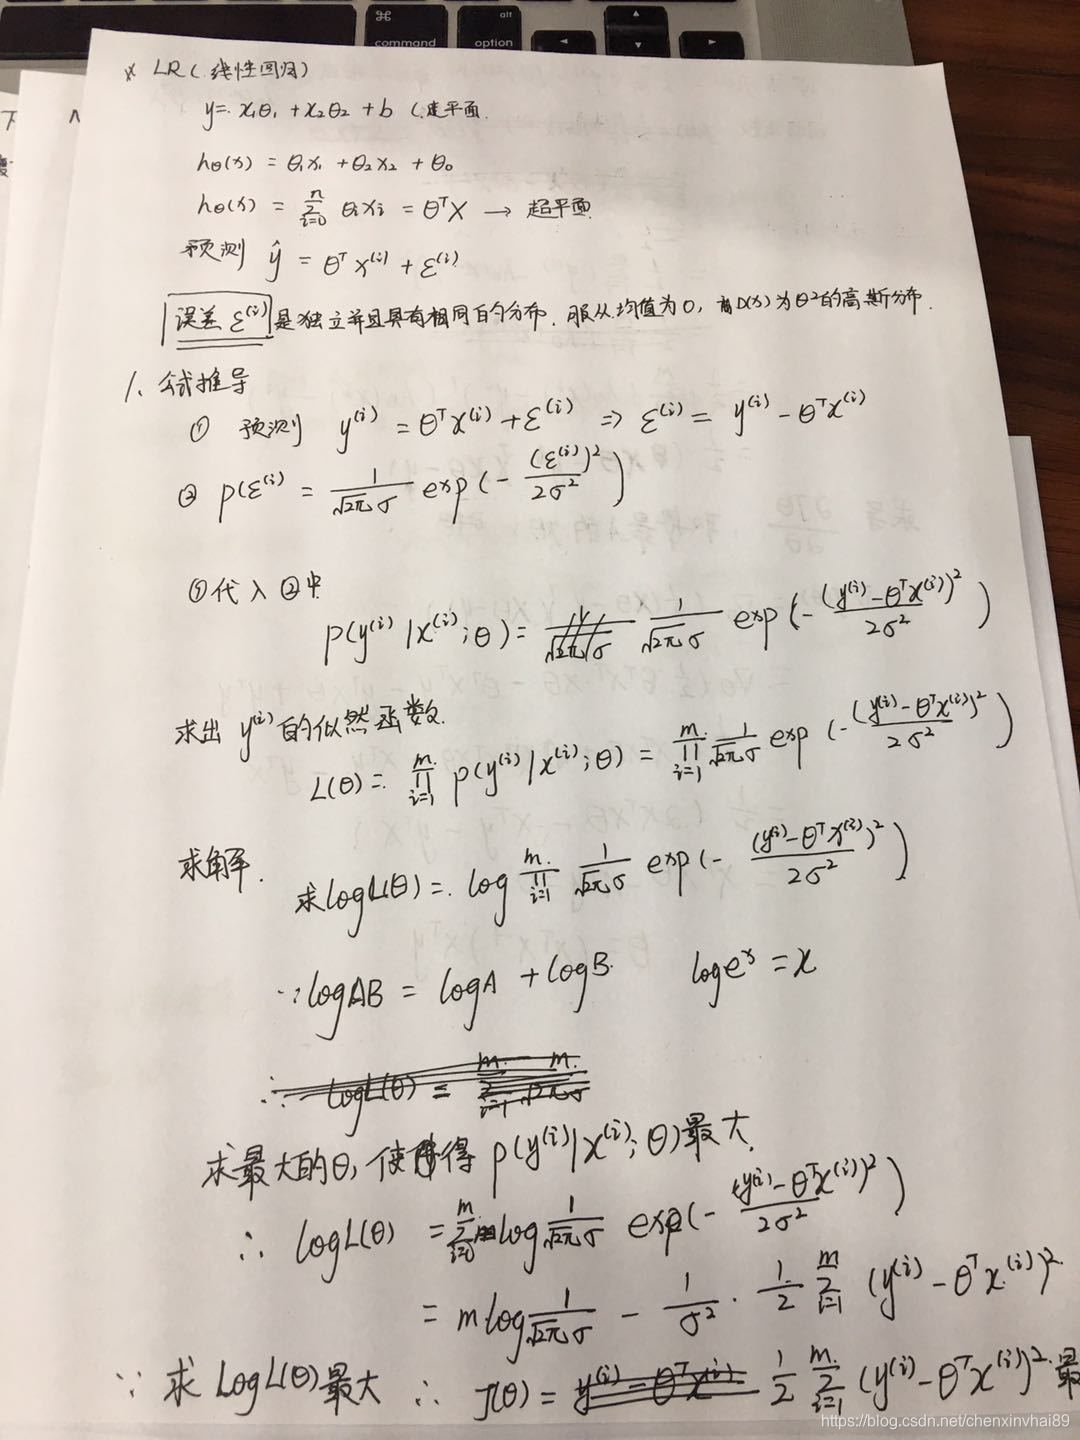 command
alt
option
下
x LR(线性回归)
y = x₁θ₁ + x₂θ₂ + b (是平面.
hθ(x) = θ₁x₁ + θ₂x₂ + θ₀
hθ(x) = Σ_{i=0}^{n} θᵢxᵢ = θᵀX → 超平面
预测 ŷ = θᵀx⁽ⁱ⁾ + ε⁽ⁱ⁾
误差 ε⁽ⁱ⁾ 是独立并且具有相同的分布. 服从均值为0, D(x)为θ²的高斯分布.
1、公式推导
① 预测 y⁽ⁱ⁾ = θᵀx⁽ⁱ⁾ + ε⁽ⁱ⁾ ⇒ ε⁽ⁱ⁾ = y⁽ⁱ⁾ - θᵀx⁽ⁱ⁾
② p(ε⁽ⁱ⁾ = 1/(√2π σ) exp(- (ε⁽ⁱ⁾)²/2σ²)
①代入②中
p(y⁽ⁱ⁾|x⁽ⁱ⁾;θ) = 1/(√2π σ) exp(- (y⁽ⁱ⁾ - θᵀx⁽ⁱ⁾)²/2σ²)
求出 y⁽ⁱ⁾的似然函数.
L(θ) = Π_{i=1}^{m} p(y⁽ⁱ⁾|x⁽ⁱ⁾;θ) = Π_{i=1}^{m} 1/(√2π σ) exp(- (y⁽ⁱ⁾ - θᵀx⁽ⁱ⁾)²/2σ²)
求解.
求logL(θ) = log Π_{i=1}^{m} 1/(√2π σ) exp(- (y⁽ⁱ⁾ - θᵀx⁽ⁱ⁾)²/2σ²)
∵ logAB = logA + logB. logeˣ = x
∴ logL(θ) = Σ_{i=1}^{m}
求最大的θ, 使得 p(y⁽ⁱ⁾|x⁽ⁱ⁾;θ)最大.
∴ logL(θ) = Σ_{i=0}^{m} log 1/(√2π σ) exp(- (y⁽ⁱ⁾ - θᵀx⁽ⁱ⁾)²/2σ²)
= m log 1/(√2π σ) - 1/σ² · 1/2 Σ_{i=1}^{m} (y⁽ⁱ⁾ - θᵀx⁽ⁱ⁾)².
∵ 求 LogL(θ)最大 ∴ J(θ) = y⁽ⁱ⁾ - θᵀx⁽ⁱ⁾ 1/2 Σ_{i=1}^{m} (y⁽ⁱ⁾ - θᵀx⁽ⁱ⁾)² 最
https://blog.csdn.net/chenxinvhai89